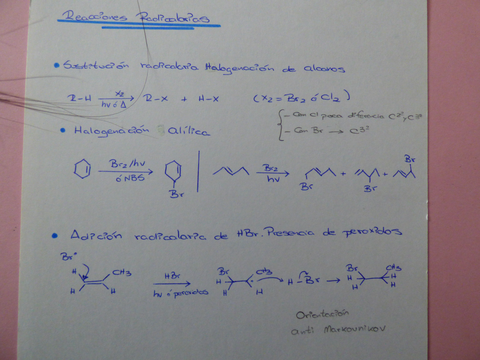 Reacciones Radicalarias
• Sustitución radicalaria Halogenación de alcanos
R-H X₂ hν ó Δ R-X + H-X (X₂ = Br₂ ó Cl₂)
- Con Cl poca diferencia C²º, C³º
- Con Br → C³º
• Halogenación Alílica
Br₂/hν ó NBS Br Br₂ hν Br + Br + Br
• Adición radicalaria de HBr. Presencia de peróxidos
Br• H CH₃ H H HBr hν ó peróxidos Br H H CH₃ • H H-Br → Br CH₃ H H H H
Orientación
anti Markovnikov